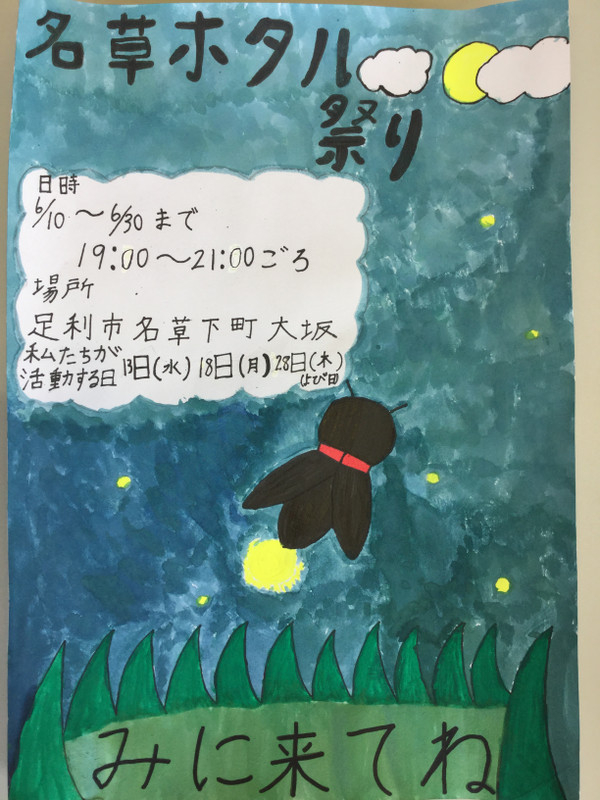 名草ホタル
祭り
日時
6/10～6/30まで
19:00～21:00ごろ
場所
足利市名草下町大坂
私たちが
活動する日 13日(水) 18日(月) 28日(木)
よび日
みに来てね